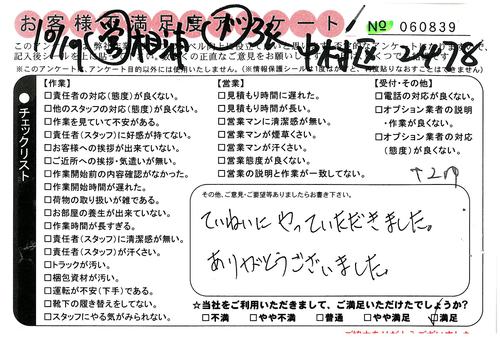 お客様満足度アンケート
№ 060839
中村区 24478
記入後シールを上に貼って下さい。
※このアンケートは、アンケート目的以外には使用いたしません。
チェックリスト
【作業】
□責任者の対応(態度)が良くない。
□他のスタッフの対応(態度)が良くない。
□作業を見ていて不安がある。
□責任者(スタッフ)に好感が持てない。
□お客様への挨拶が出来ていない。
□ご近所への挨拶・気遣いが無い。
□作業開始前の内容確認がなかった。
□作業開始時間が遅れた。
□荷物の取り扱いが雑である。
□お部屋の養生が出来ていない。
□作業時間が長すぎる。
□責任者(スタッフ)に清潔感が無い。
□責任者(スタッフ)が汗くさい。
□トラックが汚い。
□梱包資材が汚い。
□運転が不安(下手)である。
□靴下の履き替えをしてない。
□スタッフにやる気がみられない。
【営業】
□見積もり時間に遅れた。
□見積もり時間が長い。
□営業マンに清潔感が無い。
□営業マンが煙草くさい。
□営業マンが汗くさい。
□営業態度が良くない。
□営業の説明と作業が一致してない。
【受付・その他】
□電話の対応が良くない。
□オプション業者の説明
・作業が良くない。
□オプション業者の対応
(態度)が良くない。
その他、ご意見・ご要望等ありましたらお書き下さい。
ていねいにやっていただきました。
ありがとうございました。
☆当社をご利用いただきまして、ご満足いただけたでしょうか?
□不満 □やや不満 □普通 □やや満足 □満足